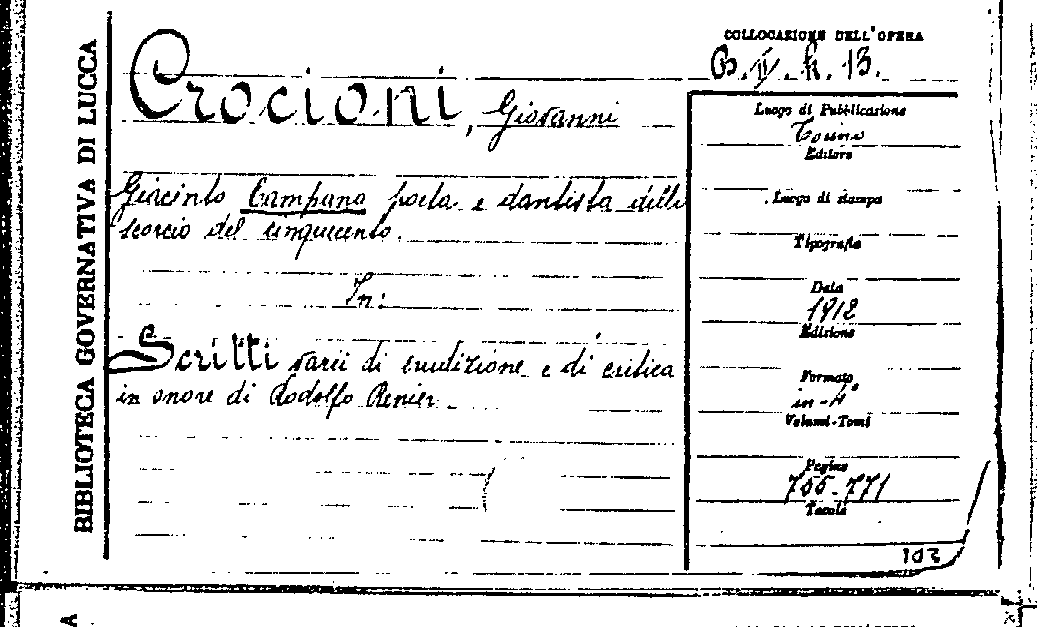 BIBLIOTECA GOVERNATIVA DI LUCCA
Crocioni, Giovanni
Giacinto Campana poeta e dantista dello
scorcio del cinquecento.
In:
Scritti varii di erudizione e di critica
in onore di Rodolfo Renier.
COLLOCAZIONE DELL'OPERA
B. II. h. 13.
Luogo di Pubblicazione
Torino
Editore
Luogo di stampa
Tipografia
Data
1912
Edizione
Formato
in-4°
Volumi-Tomi
Pagine
755-771
Tavole
102
A